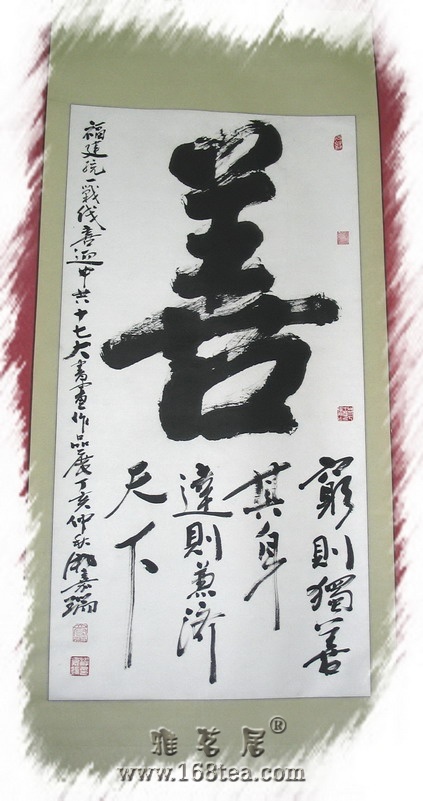 善
窮則獨善
其身
達則兼濟
天下
福建統一戰綫喜迎中共十七大書畫作品展丁亥仲秋嘉瑞
雅茗居®
www.168tea.com